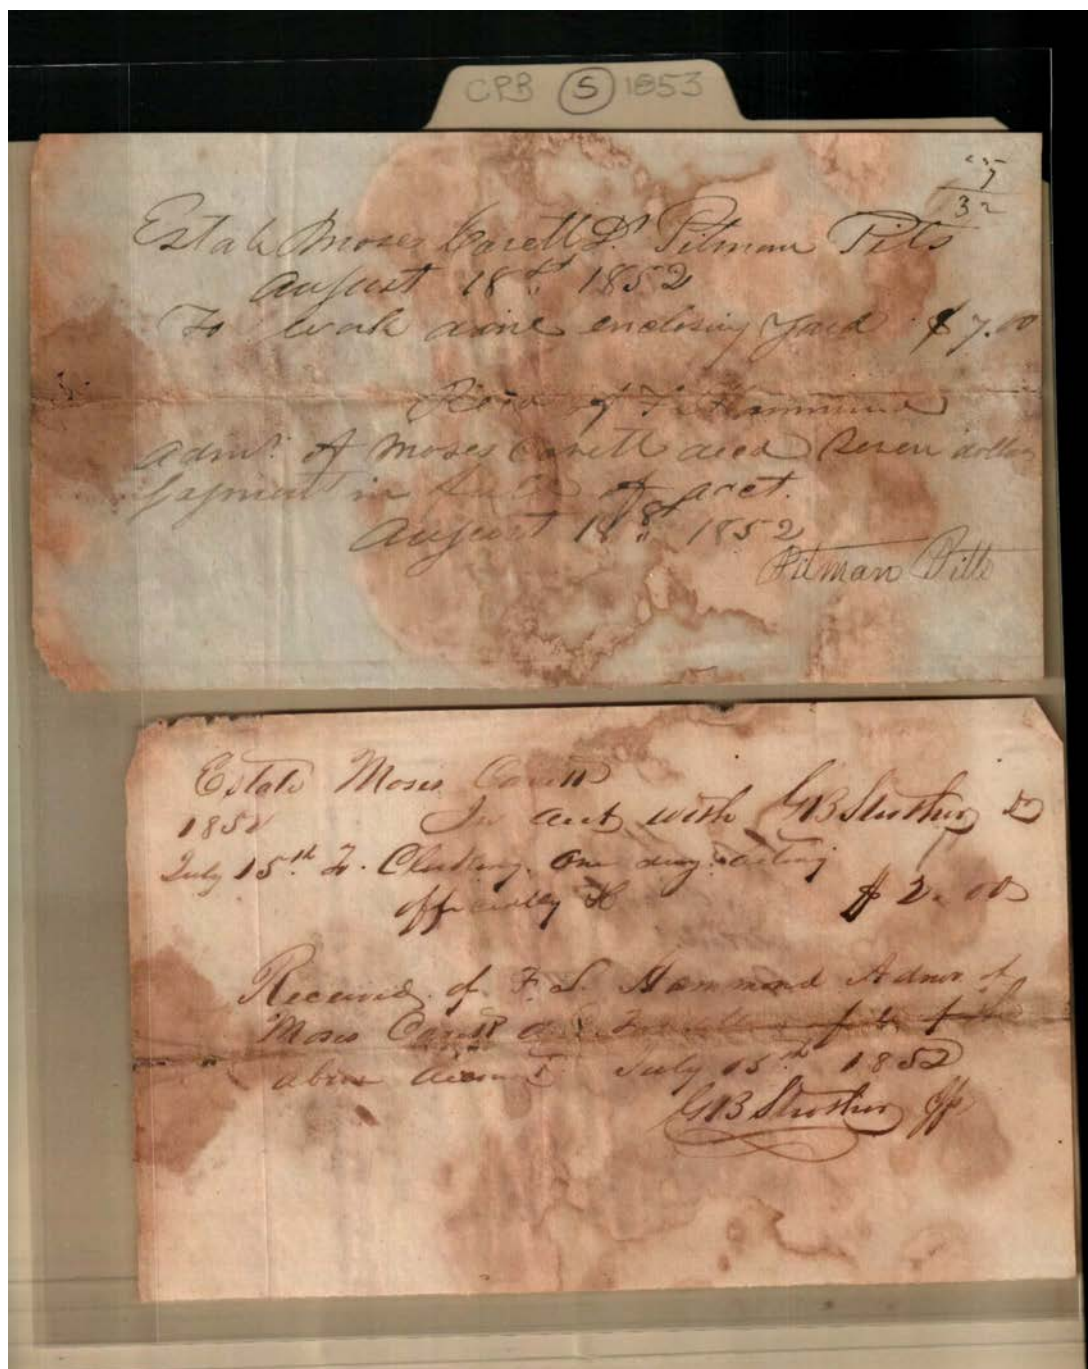 CPB (S) 1853
7
32
Estate Moses Cavett Dr Pitman Pits
August 18th 1852
To work done enclosing yard $7.00
Recd of F. L. Hammond
admr. of Moses Cavett decd Seven dollars
payment in full of acct.
August 18th 1852
Pitman Pitts
Estate Moses Cavett
1852 In acct with GB Strother Dr
July 15th To Clerking one day acting
officially $ 2.00
Received of F. L. Hammond Admr of
Moses Cavett
above account July 15th 1852
GB Strother